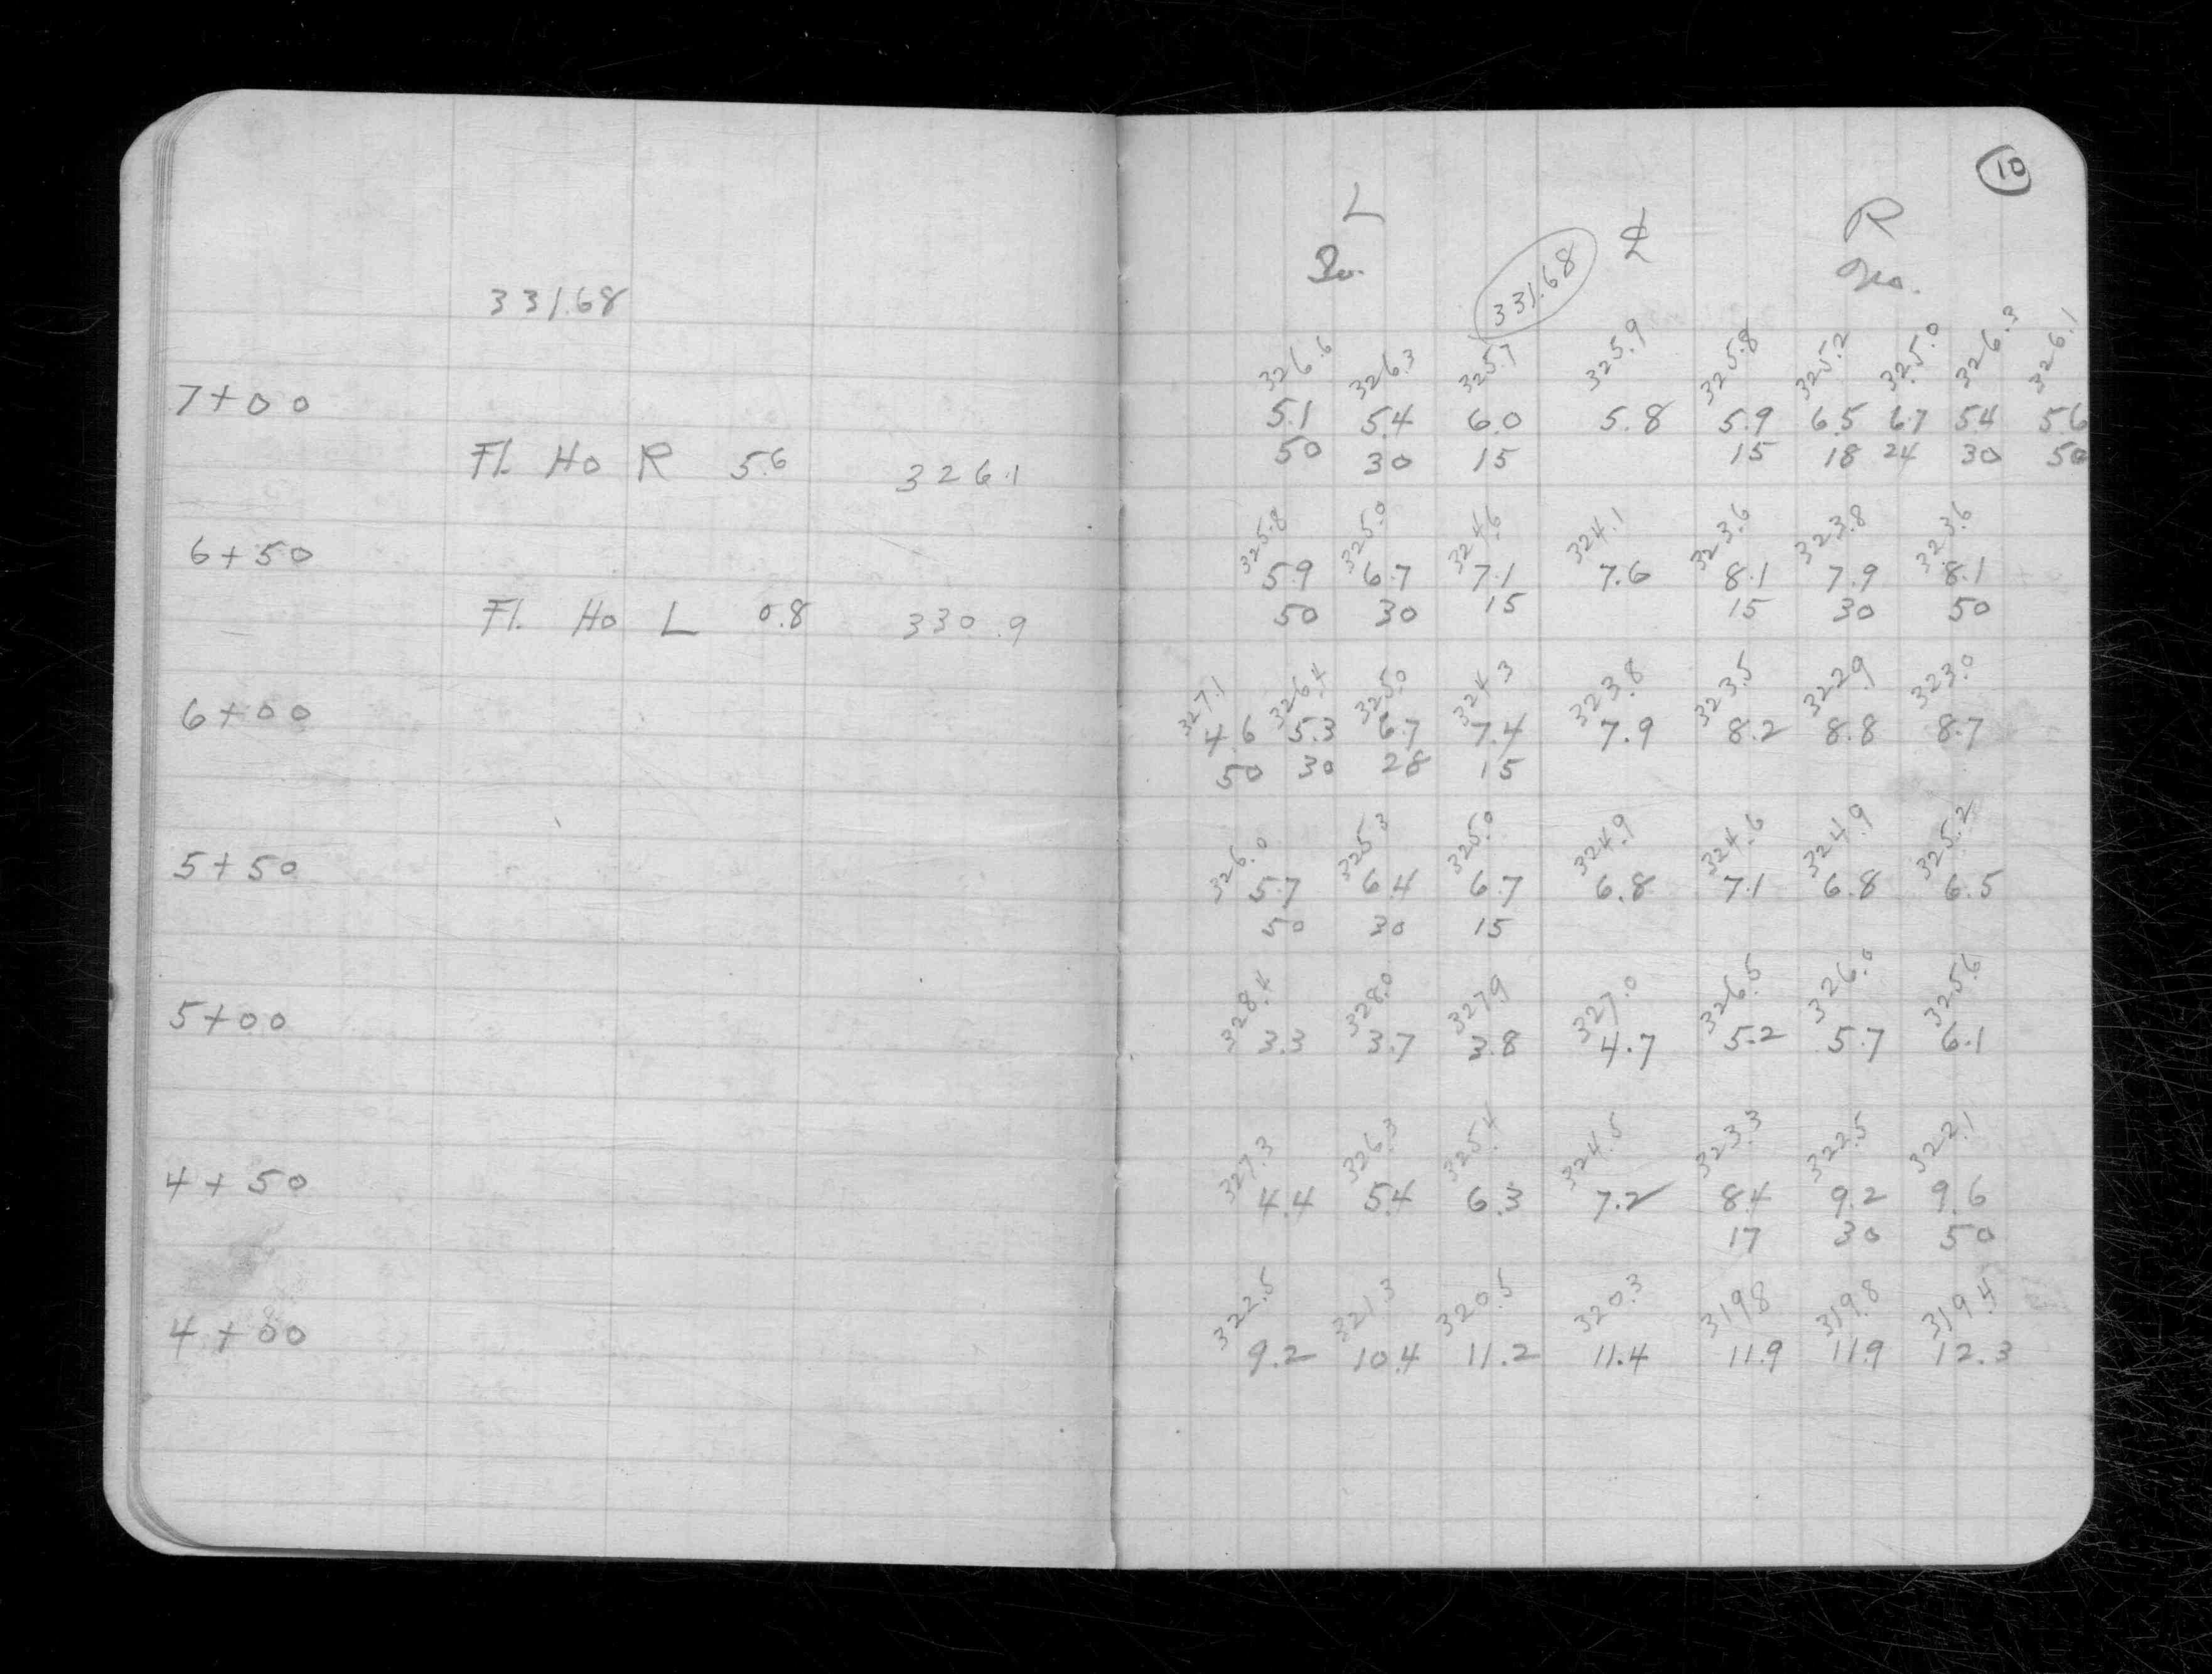 331.68
7+00
Fl. Ho R 5.6 326.1
6+50
Fl. Ho L 0.8 330.9
6+00
5+50
5+00
4+50
4+00
10
L ℄ R
331.68
326.6 326.3 325.7 325.9 325.8 325.2 325.0 326.3 326.1
5.1 5.4 6.0 5.8 5.9 6.5 6.7 5.4 5.6
50 30 15 15 18 24 30 50
325.8 325.0 324.6 324.1 323.6 323.8 323.6
5.9 6.7 7.1 7.6 8.1 7.9 8.1
50 30 15 15 30 50
327.1 326.4 325.0 324.3 323.8 323.5 322.9 323.0
4.6 5.3 6.7 7.4 7.9 8.2 8.8 8.7
50 30 28 15
326.0 325.3 325.0 324.9 324.6 324.9 325.2
5.7 6.4 6.7 6.8 7.1 6.8 6.5
50 30 15
328.4 328.0 327.9 327.0 326.5 326.0 325.6
3.3 3.7 3.8 4.7 5.2 5.7 6.1
327.3 326.3 325.4 324.5 323.3 322.5 322.1
4.4 5.4 6.3 7.2 8.4 9.2 9.6
17 30 50
322.5 321.3 320.5 320.3 319.8 319.8 319.4
9.2 10.4 11.2 11.4 11.9 11.9 12.3